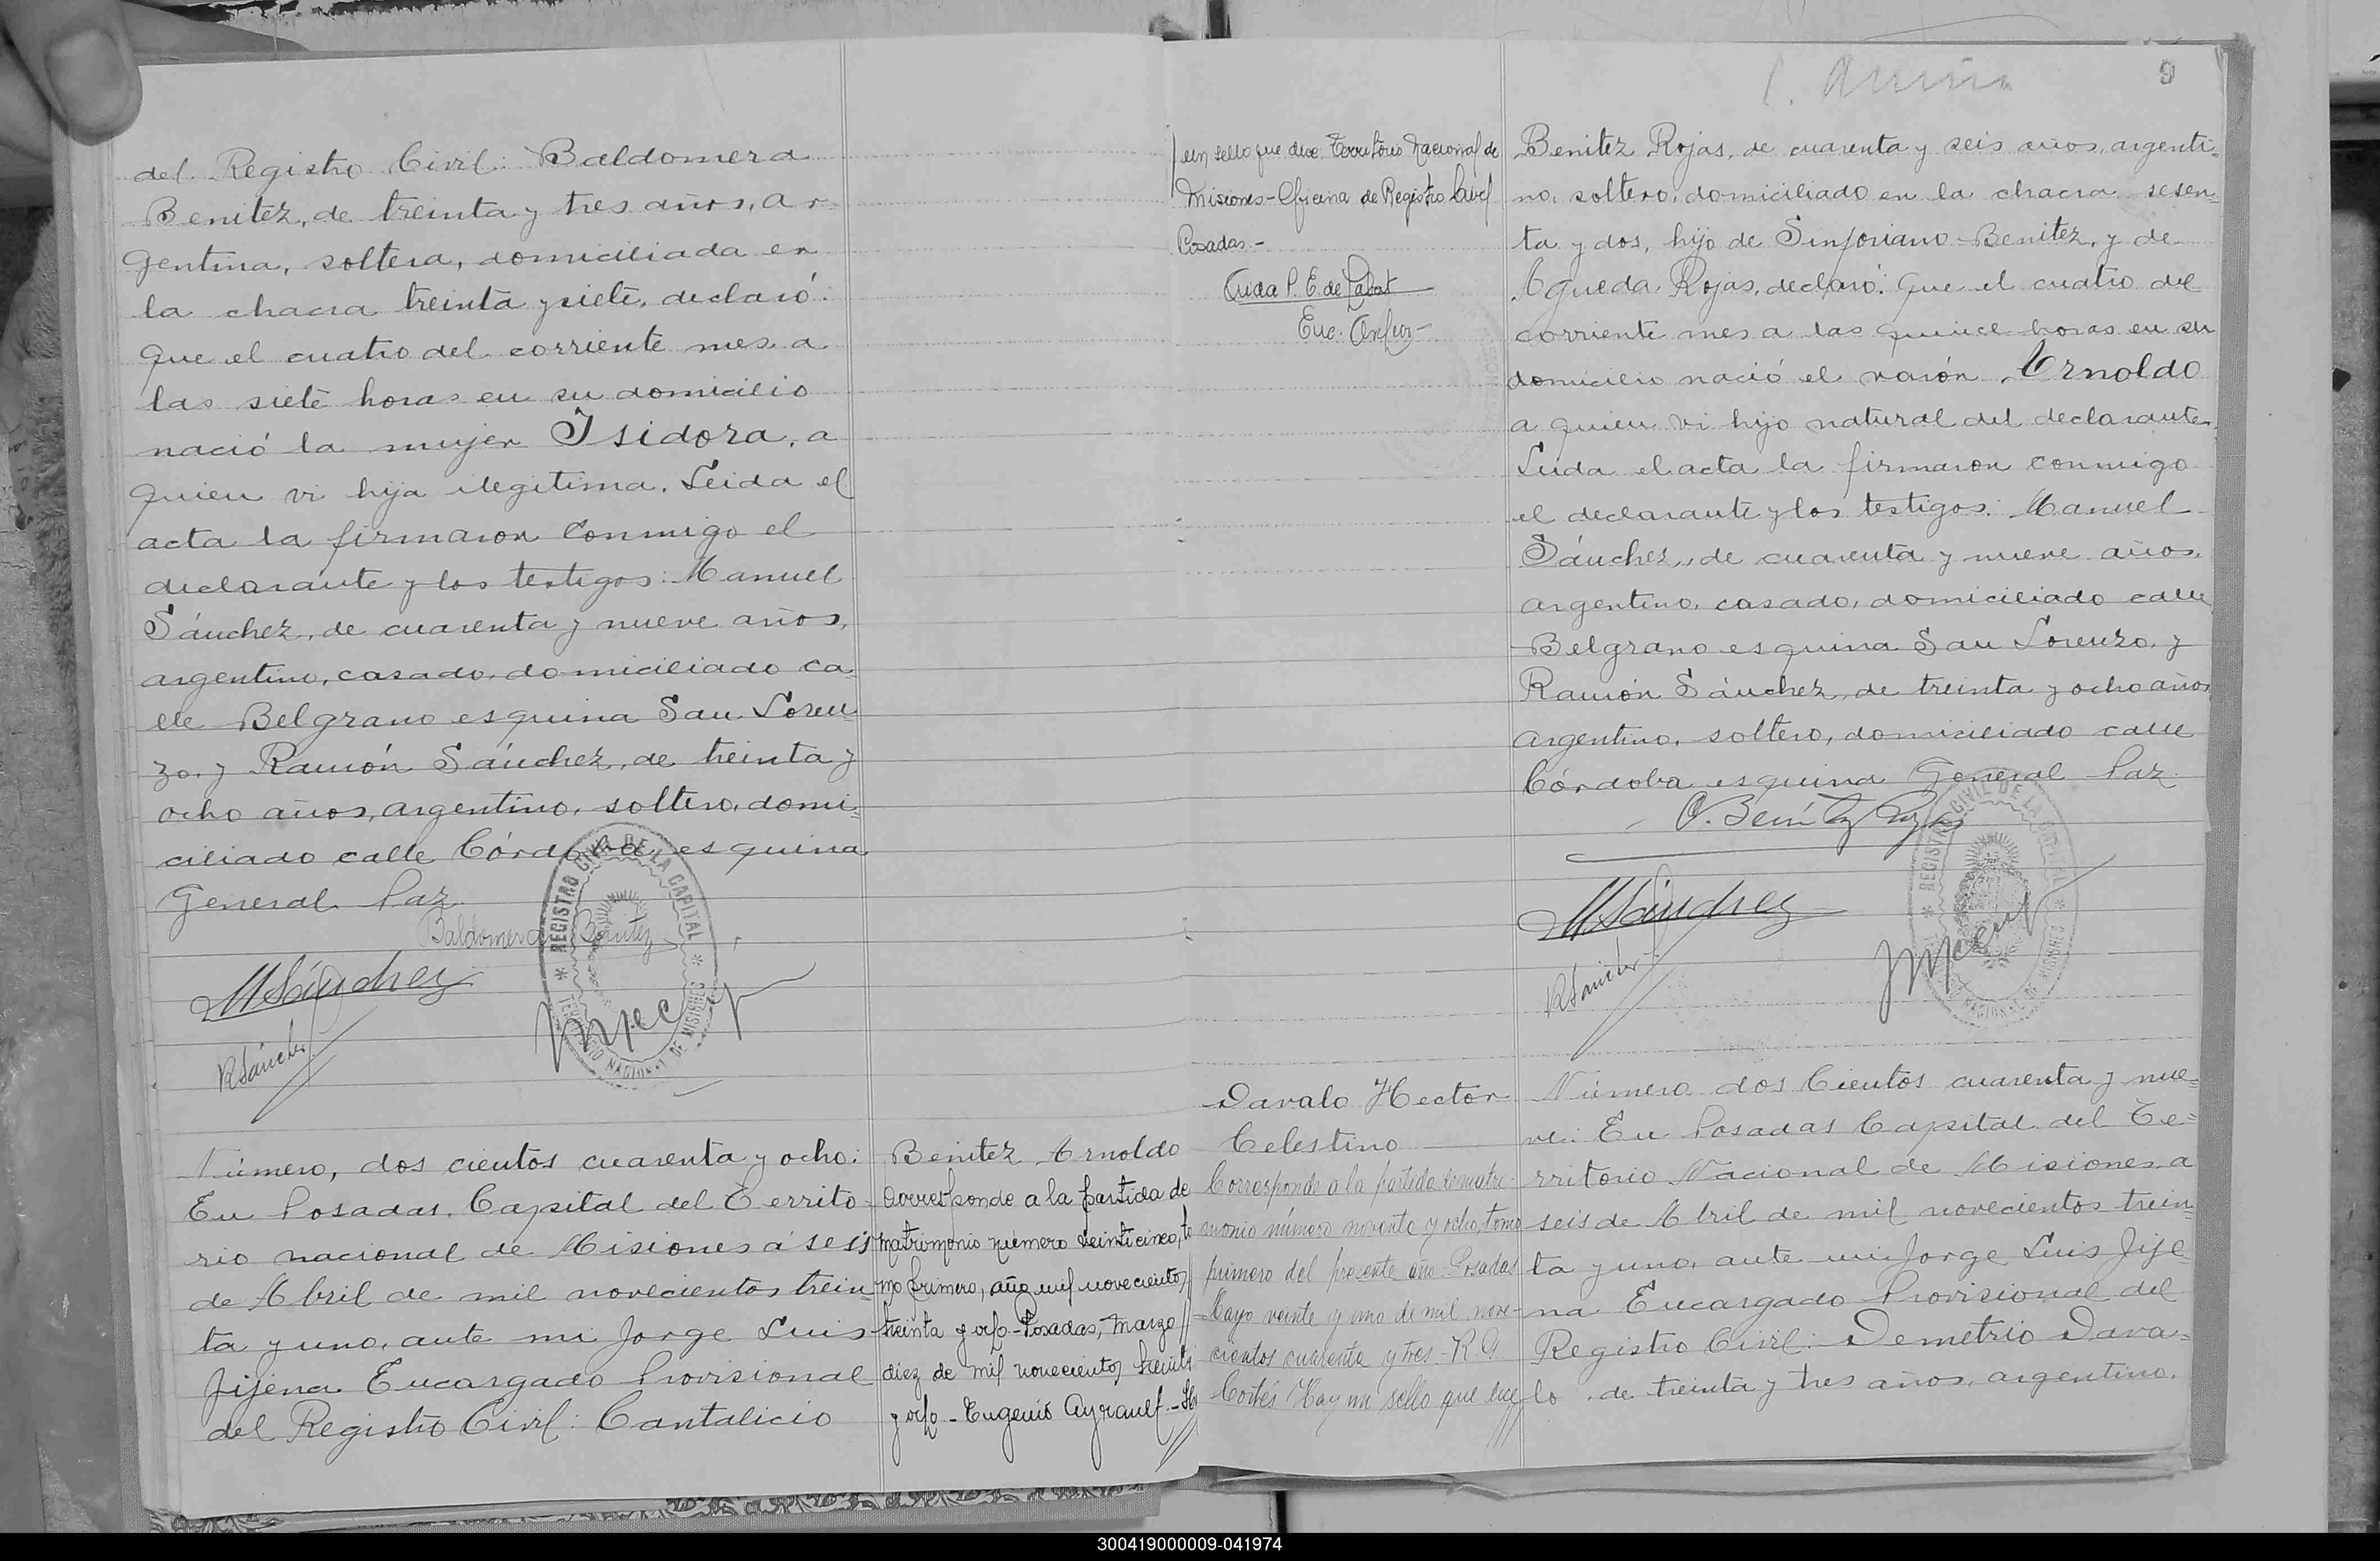 del Registro Civil: Baldomera
Benitez, de treinta y tres años, ar-
gentina, soltera, domiciliada en
la chacra treinta y siete, declaró:
Que el cuatro del corriente mes a
las siete horas en su domicilio
nació la mujer Isidora, a
quien vi hija ilegitima. Leida el
acta la firmaron conmigo el
declarante y los testigos: Manuel
Sánchez, de cuarenta y nueve años,
argentino, casado, domiciliado ca-
lle Belgrano esquina San Loren=
zo, y Ramón Sánchez, de treinta y
ocho años, argentino, soltero, domi=
ciliado calle Córdoba esquina
General Paz.
Baldomera Benitez
MSánchez
RSánchez
REGISTRO CIVIL DE LA CAPITAL
TERRITORIO NACIONAL DE MISIONES
Número, dos cientos cuarenta y ocho:
En Posadas, Capital del Territo-
rio nacional de Misiones á seis
de Abril de mil novecientos trein-
ta y uno, ante mi Jorge Luis
Jijena Encargado Provisional
del Registro Civil: Cantalicio
Benitez Arnoldo
Corresponde a la partida de
matrimonio número veinticinco, to
mo primero, año mil novecientos
treinta y ocho - Posadas, Marzo
diez de mil novecientos treinta
y ocho - Eugenio
un sello que dice: Territorio Nacional de
Misiones - Oficina de Registro Civil
Posadas.-
P. E. de
9
Benitez Rojas, de cuarenta y seis años, argenti=
no, soltero, domiciliado en la chacra sesen=
ta y dos, hijo de Sinforiano Benitez, y de
Agueda Rojas, declaró: Que el cuatro del
corriente mes a las quince horas en su
domicilio nació el varón Arnoldo
a quien vi hijo natural del declarante.
Leida el acta la firmaron conmigo
el declarante y los testigos: Manuel
Sánchez, de cuarenta y nueve años,
argentino, casado, domiciliado calle
Belgrano esquina San Lorenzo, y
Ramón Sánchez, de treinta y ocho años
argentino, soltero, domiciliado calle
Córdoba esquina General Paz.
C. Benítez Rojas
MSánchez
RSánchez
REGISTRO CIVIL DE LA CAPITAL
TERRITORIO NACIONAL DE MISIONES
Davalo Hector
Celestino
Corresponde a la partida de matri-
monio número noventa y ocho, tomo
primero del presente año - Posadas
Mayo veinte y uno de mil nove-
cientos cuarenta y tres - R. G.
Cortés Hay un sello que dice
Número dos Cientos cuarenta y nue=
ve: En Posadas Capital del Te=
rritorio Nacional de Misiones a
seis de Abril de mil novecientos trein-
ta y uno, ante mi Jorge Luis Jije-
na Encargado Provisional del
Registro Civil: Demetrio Dava=
lo, de treinta y tres años, argentino,
300419000009-041974